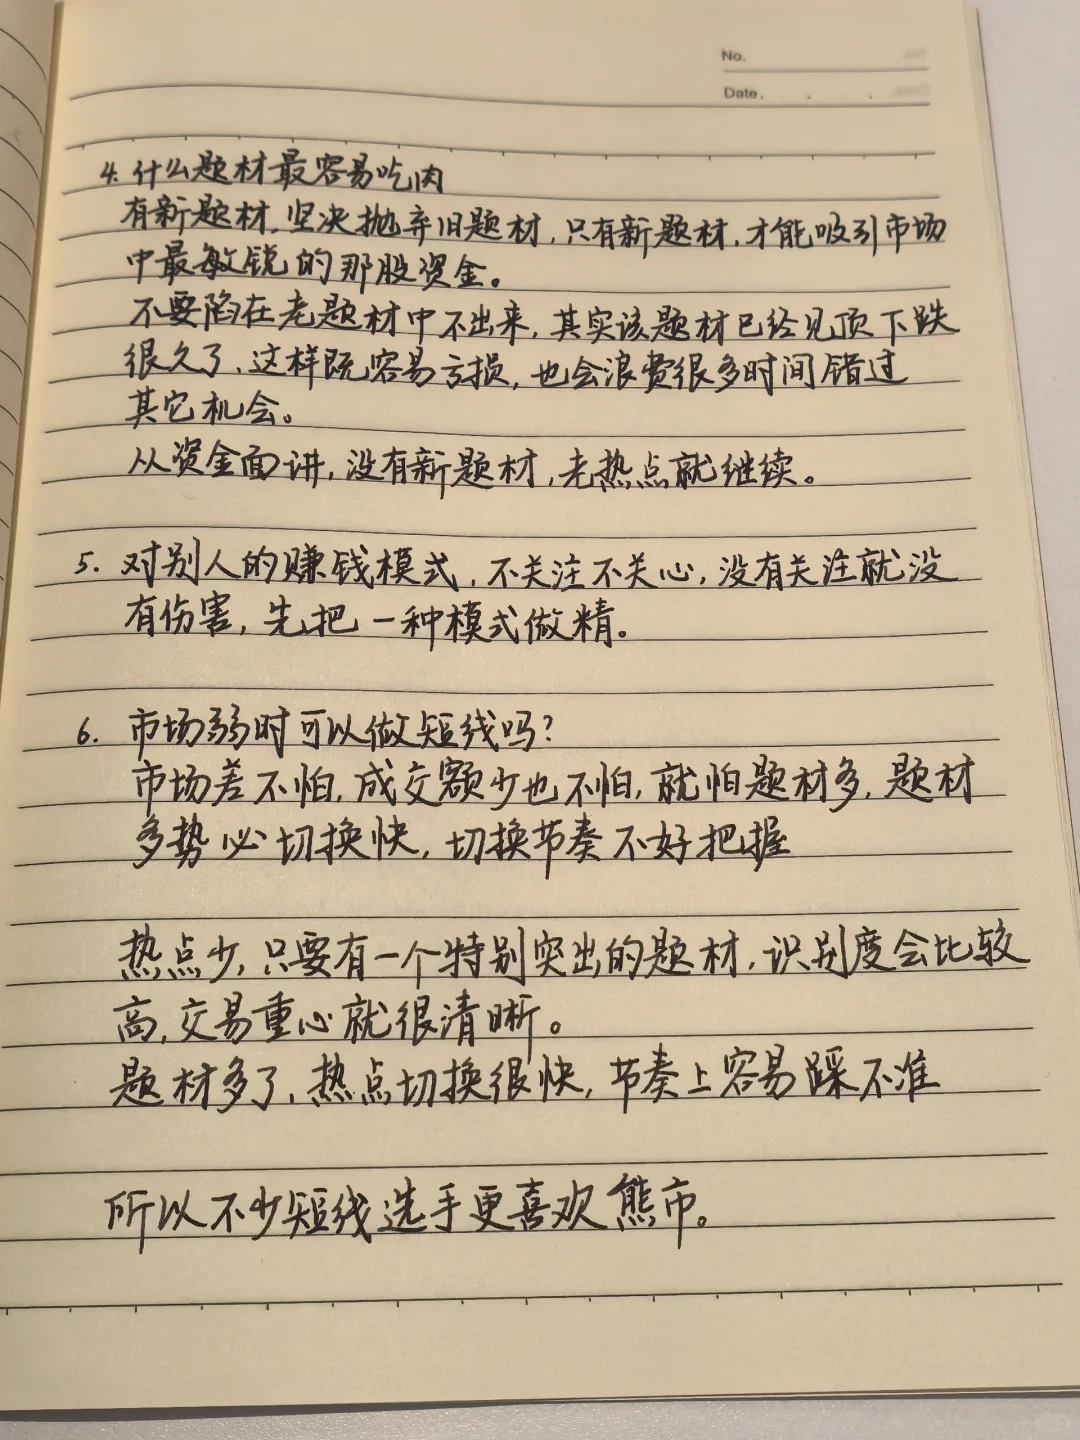 No.
Date.
4. 什么题材最容易吃肉
有新题材,坚决抛弃旧题材,只有新题材,才能吸引市场
中最敏锐的那股资金。
不要陷在老题材中不出来,其实该题材已经见顶下跌
很久了,这样既容易亏损,也会浪费很多时间错过
其它机会。
从资金面讲,没有新题材,老热点就继续。
5. 对别人的赚钱模式,不关注不关心,没有关注就没
有伤害,先把一种模式做精。
6. 市场弱时可以做短线吗?
市场差不怕,成交额少也不怕,就怕题材多,题材
多势必切换快,切换节奏不好把握
热点少,只要有一个特别突出的题材,识别度会比较
高,交易重心就很清晰。
题材多了,热点切换很快,节奏上容易踩不准
所以不少短线选手更喜欢熊市。